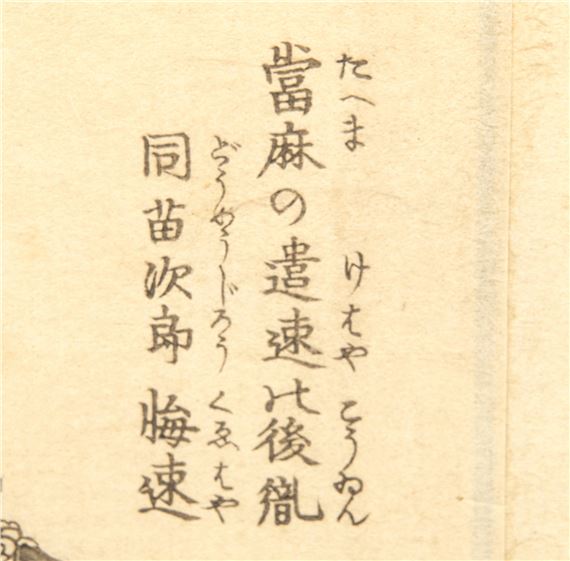 たへま けはや こうゐん
當麻の遣速の後胤
どうめうじろう くゑはや
同苗次郎 悔速